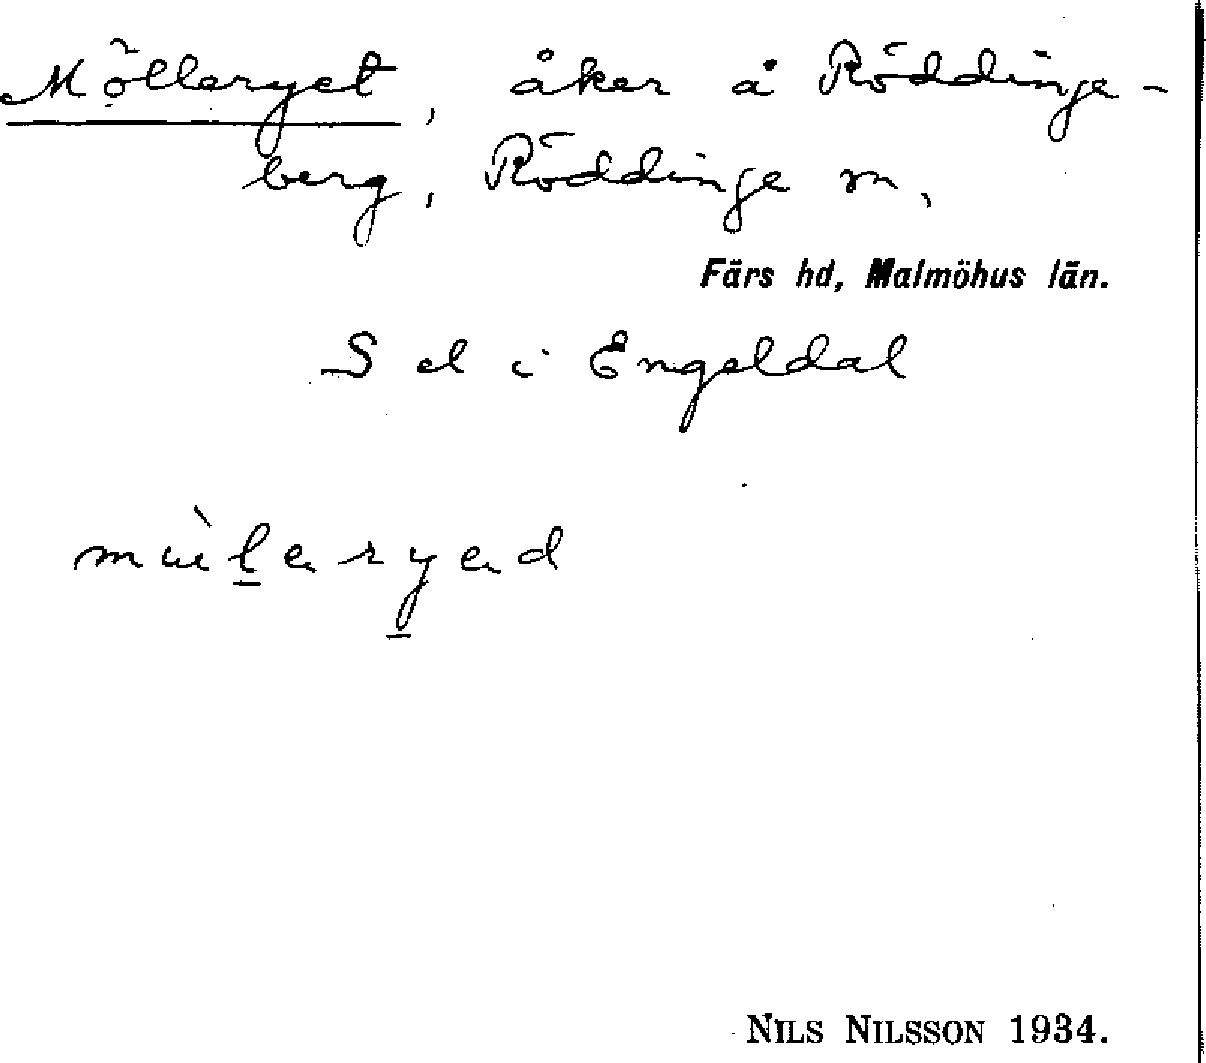 Mölleryet, åker å Röddinge-
berg, Röddinge sn,
Färs hd, Malmöhus län.
S el i Engeldal
NILS NILSSON 1934.